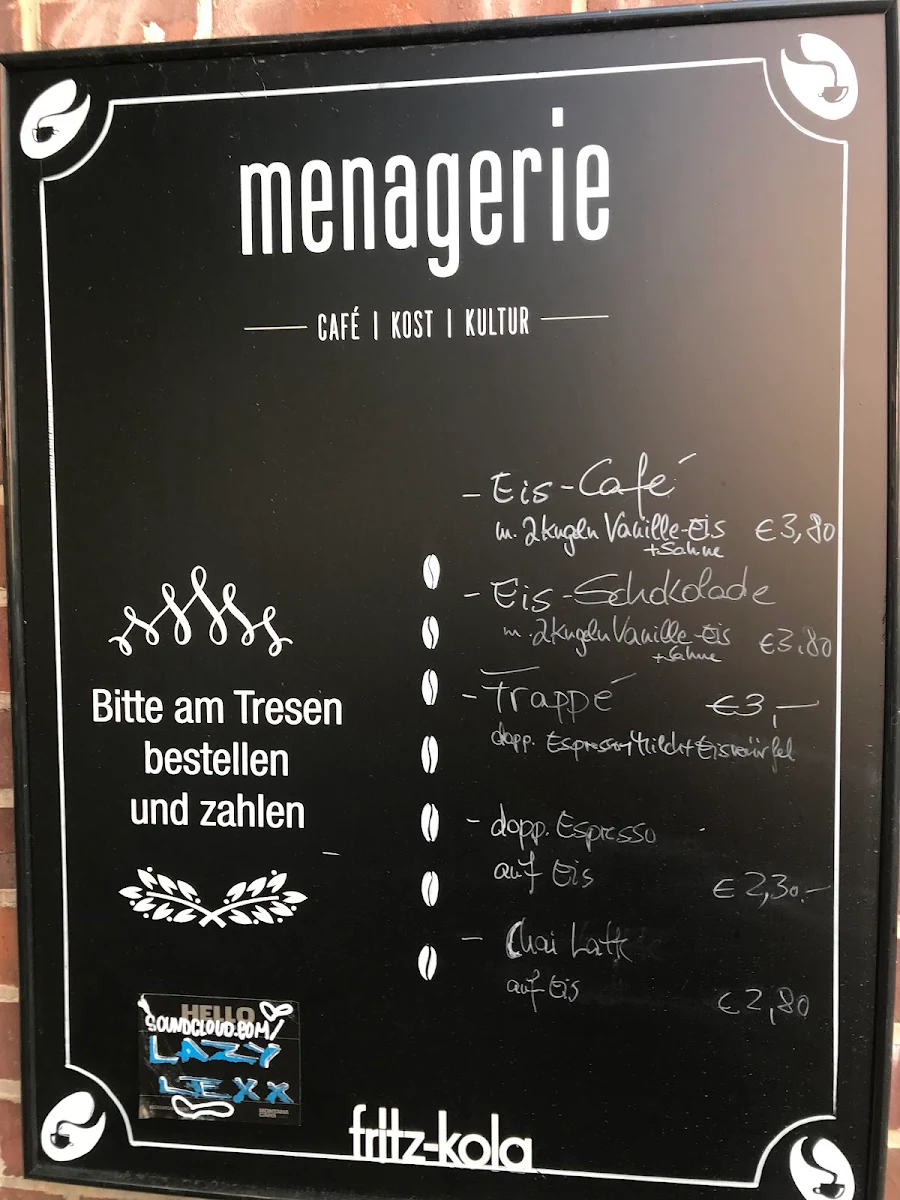 menagerie
CAFÉ | KOST | KULTUR
- Eis-Café
m. 2 Kugeln Vanille-Eis € 3,80
+Sahne
- Eis-Schokolade
m. 2 Kugeln Vanille-Eis € 3.80
+Sahne
- Frappé € 3,-
dopp. Espresso, Milch + Eiswürfel
- dopp. Espresso
auf Eis € 2,30.-
- Chai Latte
auf Eis € 2,80
Bitte am Tresen
bestellen
und zahlen
HELLO
SOUNDCLOUD.COM/
LAZY
LEXX
fritz-kola